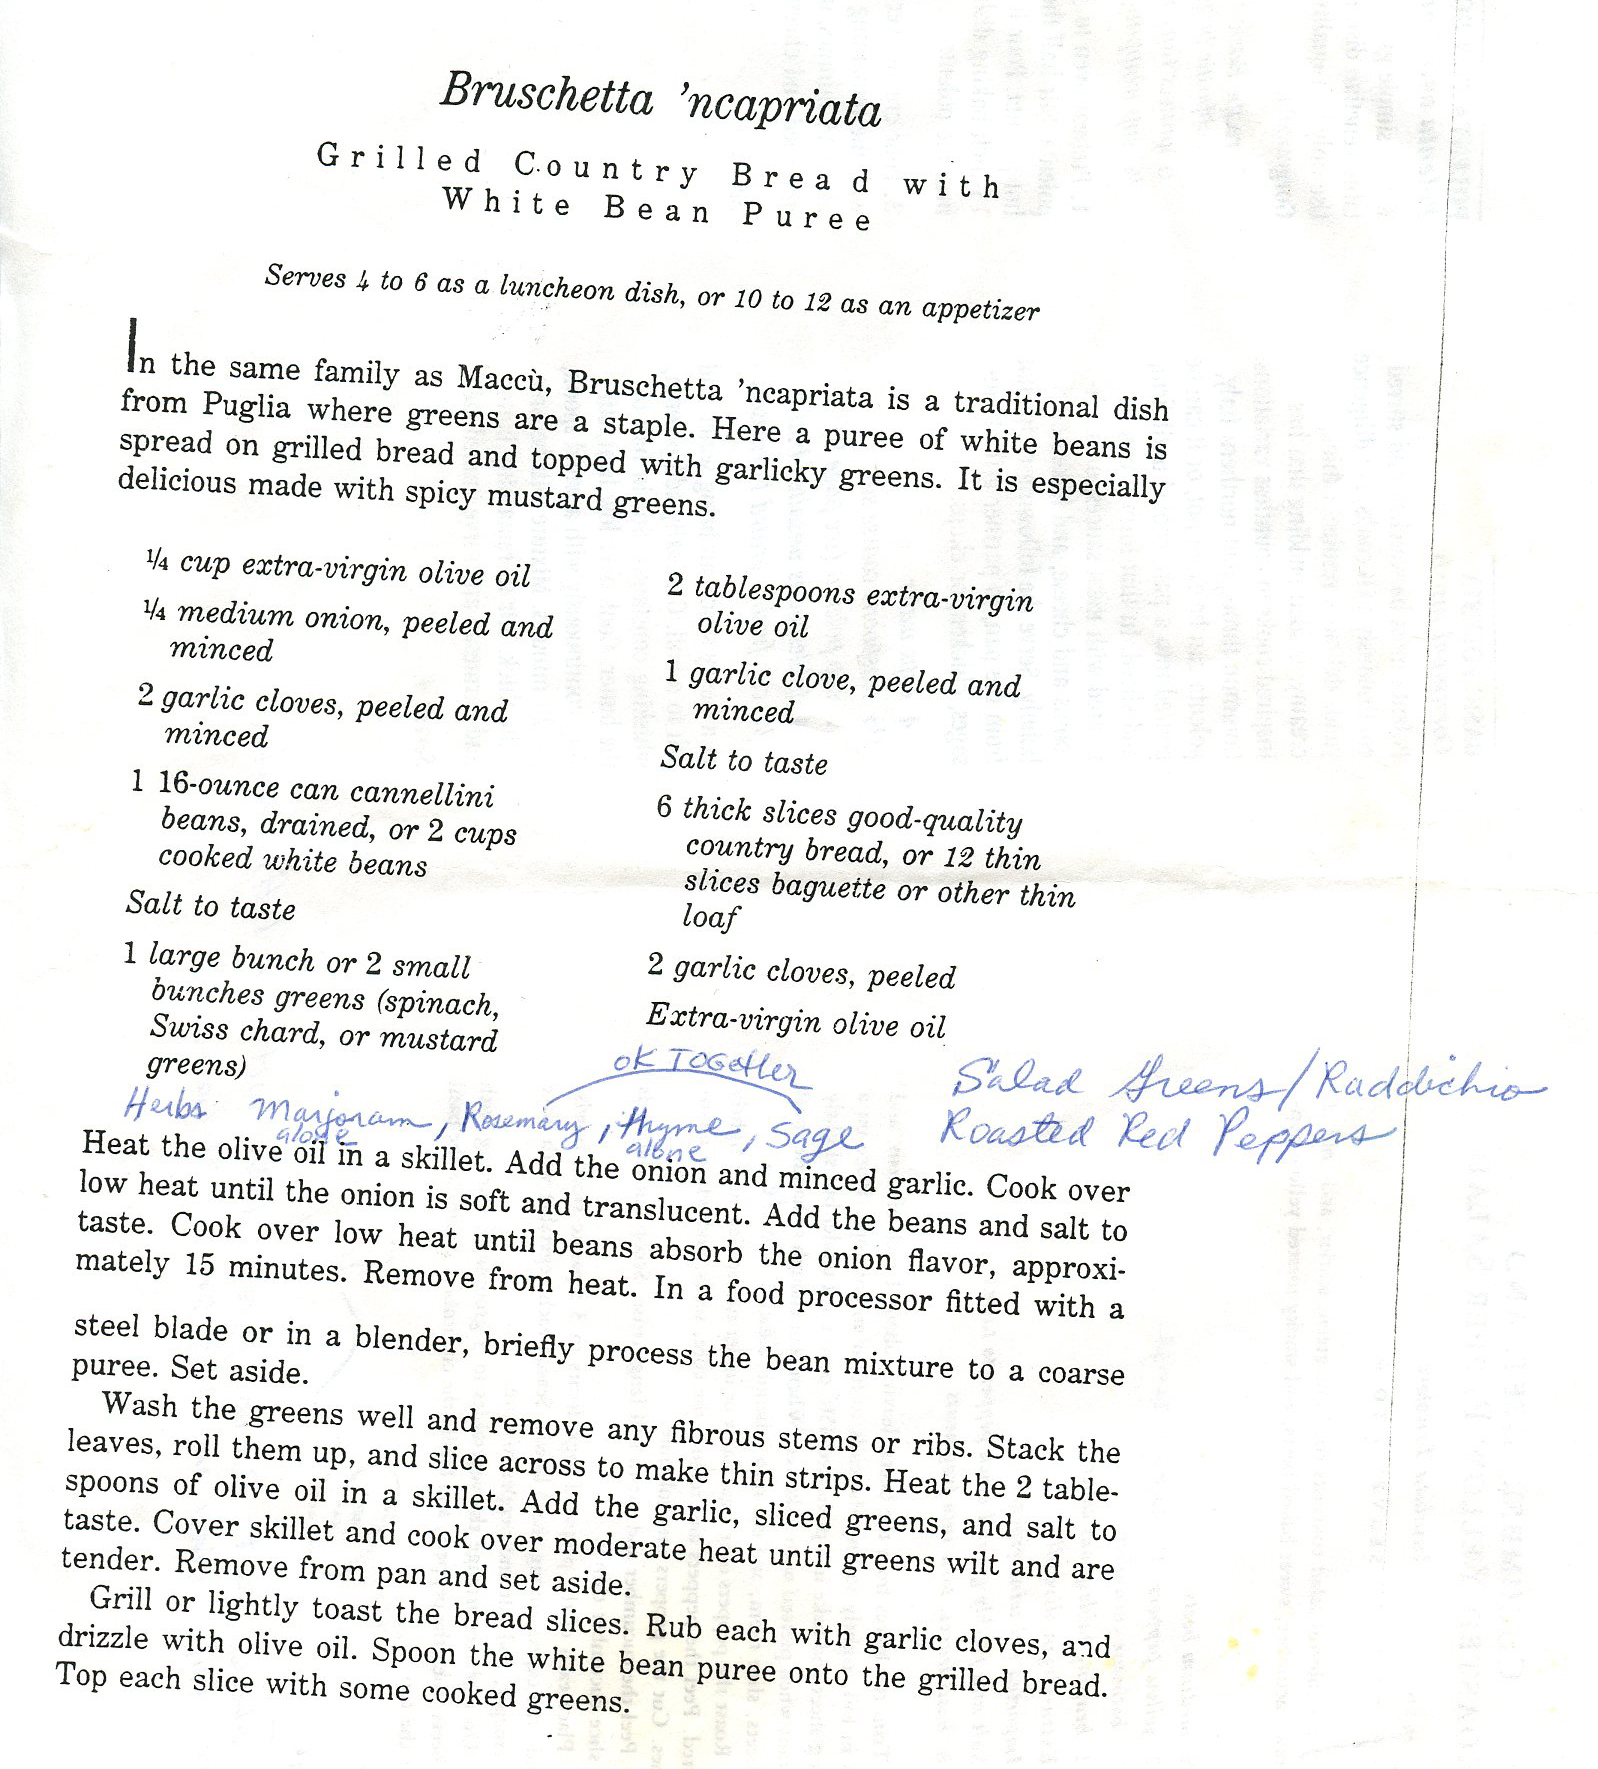 Bruschetta 'ncapriata
Grilled Country Bread with
White Bean Puree
Serves 4 to 6 as a luncheon dish, or 10 to 12 as an appetizer
In the same family as Maccù, Bruschetta 'ncapriata is a traditional dish
from Puglia where greens are a staple. Here a puree of white beans is
spread on grilled bread and topped with garlicky greens. It is especially
delicious made with spicy mustard greens.
¼ cup extra-virgin olive oil
¼ medium onion, peeled and
minced
2 garlic cloves, peeled and
minced
1 16-ounce can cannellini
beans, drained, or 2 cups
cooked white beans
Salt to taste
1 large bunch or 2 small
bunches greens (spinach,
Swiss chard, or mustard
greens)
2 tablespoons extra-virgin
olive oil
1 garlic clove, peeled and
minced
Salt to taste
6 thick slices good-quality
country bread, or 12 thin
slices baguette or other thin
loaf
2 garlic cloves, peeled
Extra-virgin olive oil
OK TOGetHer
Herbs Marjoram, Rosemary, thyme, Sage
alone alone
Salad Greens/Raddichio
Roasted Red Peppers
Heat the olive oil in a skillet. Add the onion and minced garlic. Cook over
low heat until the onion is soft and translucent. Add the beans and salt to
taste. Cook over low heat until beans absorb the onion flavor, approxi-
mately 15 minutes. Remove from heat. In a food processor fitted with a
steel blade or in a blender, briefly process the bean mixture to a coarse
puree. Set aside.
Wash the greens well and remove any fibrous stems or ribs. Stack the
leaves, roll them up, and slice across to make thin strips. Heat the 2 table-
spoons of olive oil in a skillet. Add the garlic, sliced greens, and salt to
taste. Cover skillet and cook over moderate heat until greens wilt and are
tender. Remove from pan and set aside.
Grill or lightly toast the bread slices. Rub each with garlic cloves, and
drizzle with olive oil. Spoon the white bean puree onto the grilled bread.
Top each slice with some cooked greens.